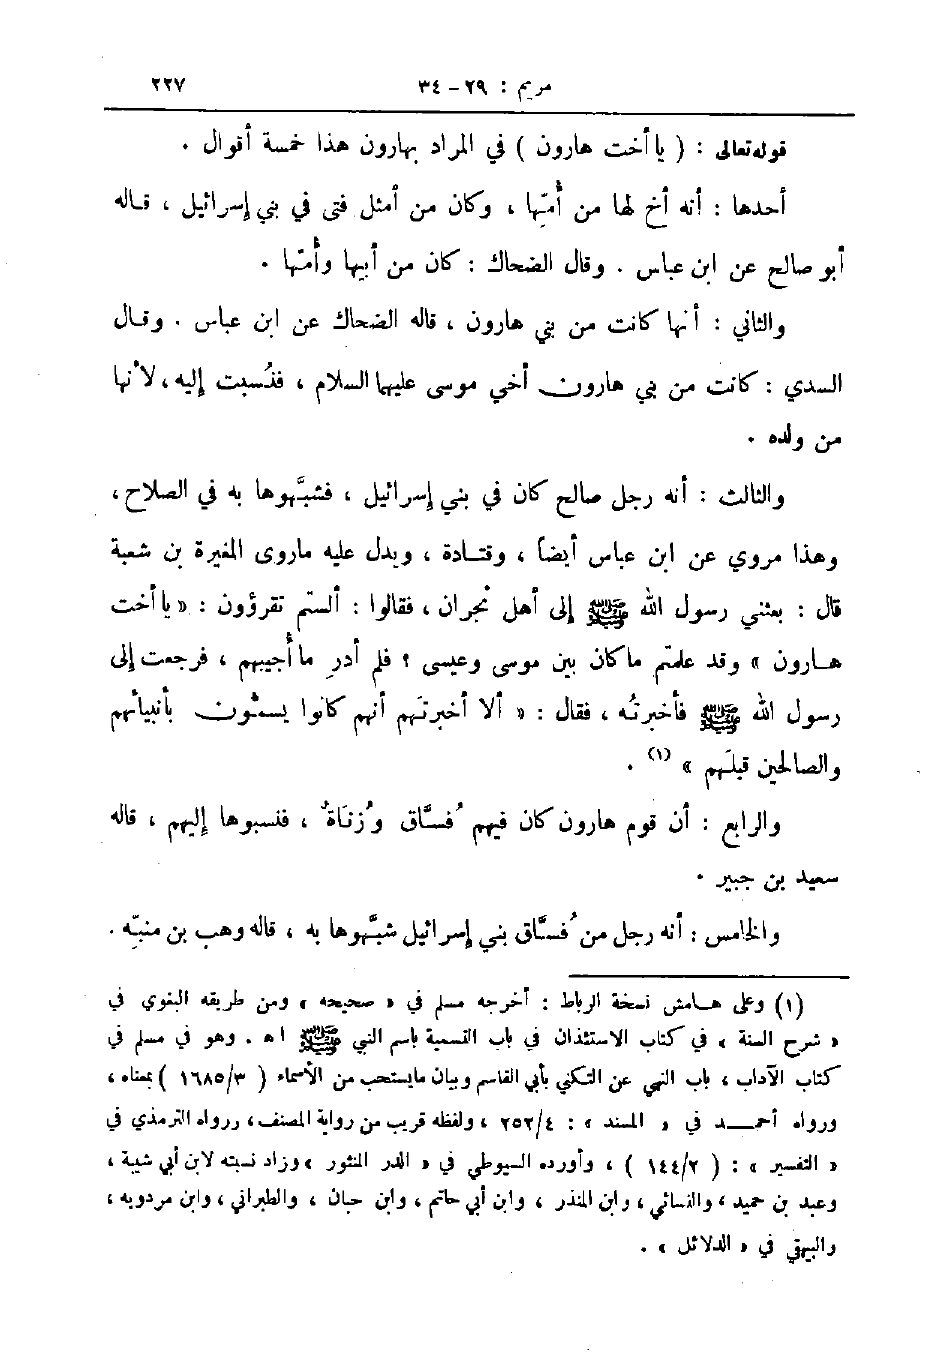 مريم : ٢٩ - ٣٤ ٢٢٧
قوله تعالى : ( يا أخت هارون ) في المراد بهارون هذا خمسة أقوال .
أحدها : أنه أخ لها من أُمّها ، وكان من أمثل فتى في بني إسرائيل ، قاله
أبو صالح عن ابن عباس . وقال الضحاك : كان من أبيها وأُمّها .
والثاني : أنها كانت من بني هارون ، قاله الضحاك عن ابن عباس . وقال
السدي : كانت من بني هارون أخي موسى عليهما السلام ، فنُسبت إليه ، لأنها
من ولده .
والثالث : أنه رجل صالح كان في بني إسرائيل ، فشبَّهوها به في الصلاح ،
وهذا مروي عن ابن عباس أيضاً ، وقتادة ، ويدل عليه ماروى المغيرة بن شعبة
قال : بعثني رسول الله ﷺ إلى أهل نجران ، فقالوا : ألستم تقرؤون : « يا أخت
هارون » وقد علمتم ماكان بين موسى وعيسى ؟ فلم أدرِ ما أُجيبهم ، فرجعت إلى
رسول الله ﷺ فأخبرتُه ، فقال : « ألا أخبرتَهم أنهم كانوا يسمّون بأنبيائهم
والصالحين قبلَهم » (١) .
والرابع : أن قوم هارون كان فيهم فُسَّاق وزُنَاةٌ ، فنسبوها إليهم ، قاله
سعيد بن جبير .
والخامس : أنه رجل من فُسَّاق بني إسرائيل شبَّهوها به ، قاله وهب بن منبّه .
(١) وعلى هامش نسخة الرباط : أخرجه مسلم في « صحيحه » ومن طريقه البغوي في
« شرح السنة » في كتاب الاستئذان في باب التسمية باسم النبي ﷺ اه . وهو في مسلم في
كتاب الآداب ، باب النهي عن التكني بأبي القاسم وبيان مايستحب من الأسماء ( ١٦٨٥/٣ ) بمعناه ،
ورواه أحمد في « المسند » : ٢٥٢/٤ ، ولفظه قريب من رواية المصنف ، ورواه الترمذي في
« التفسير » : ( ١٤٤/٢ ) ، وأورده السيوطي في « الدر المنثور » وزاد نسبته لابن أبي شيبة ،
وعبد بن حميد ، والنسائي ، وابن المنذر ، وابن أبي حاتم ، وابن حبان ، والطبراني ، وابن مردويه ،
والبيهقي في « الدلائل » .